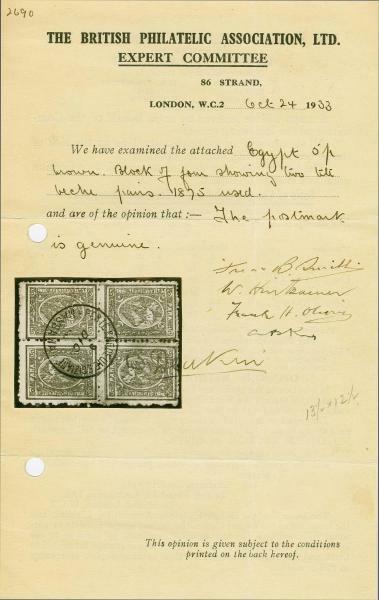 2690
THE BRITISH PHILATELIC ASSOCIATION, LTD.
EXPERT COMMITTEE
86 STRAND,
LONDON, W.C.2 Oct 24 1933
We have examined the attached Egypt 5 p
brown. Block of four showing two tête
beche pairs. 1875 used.
and are of the opinion that :— The postmark
is genuine.
B. Smith
W.
Frank H. Oliver
13½ x 12½
This opinion is given subject to the conditions
printed on the back hereof.